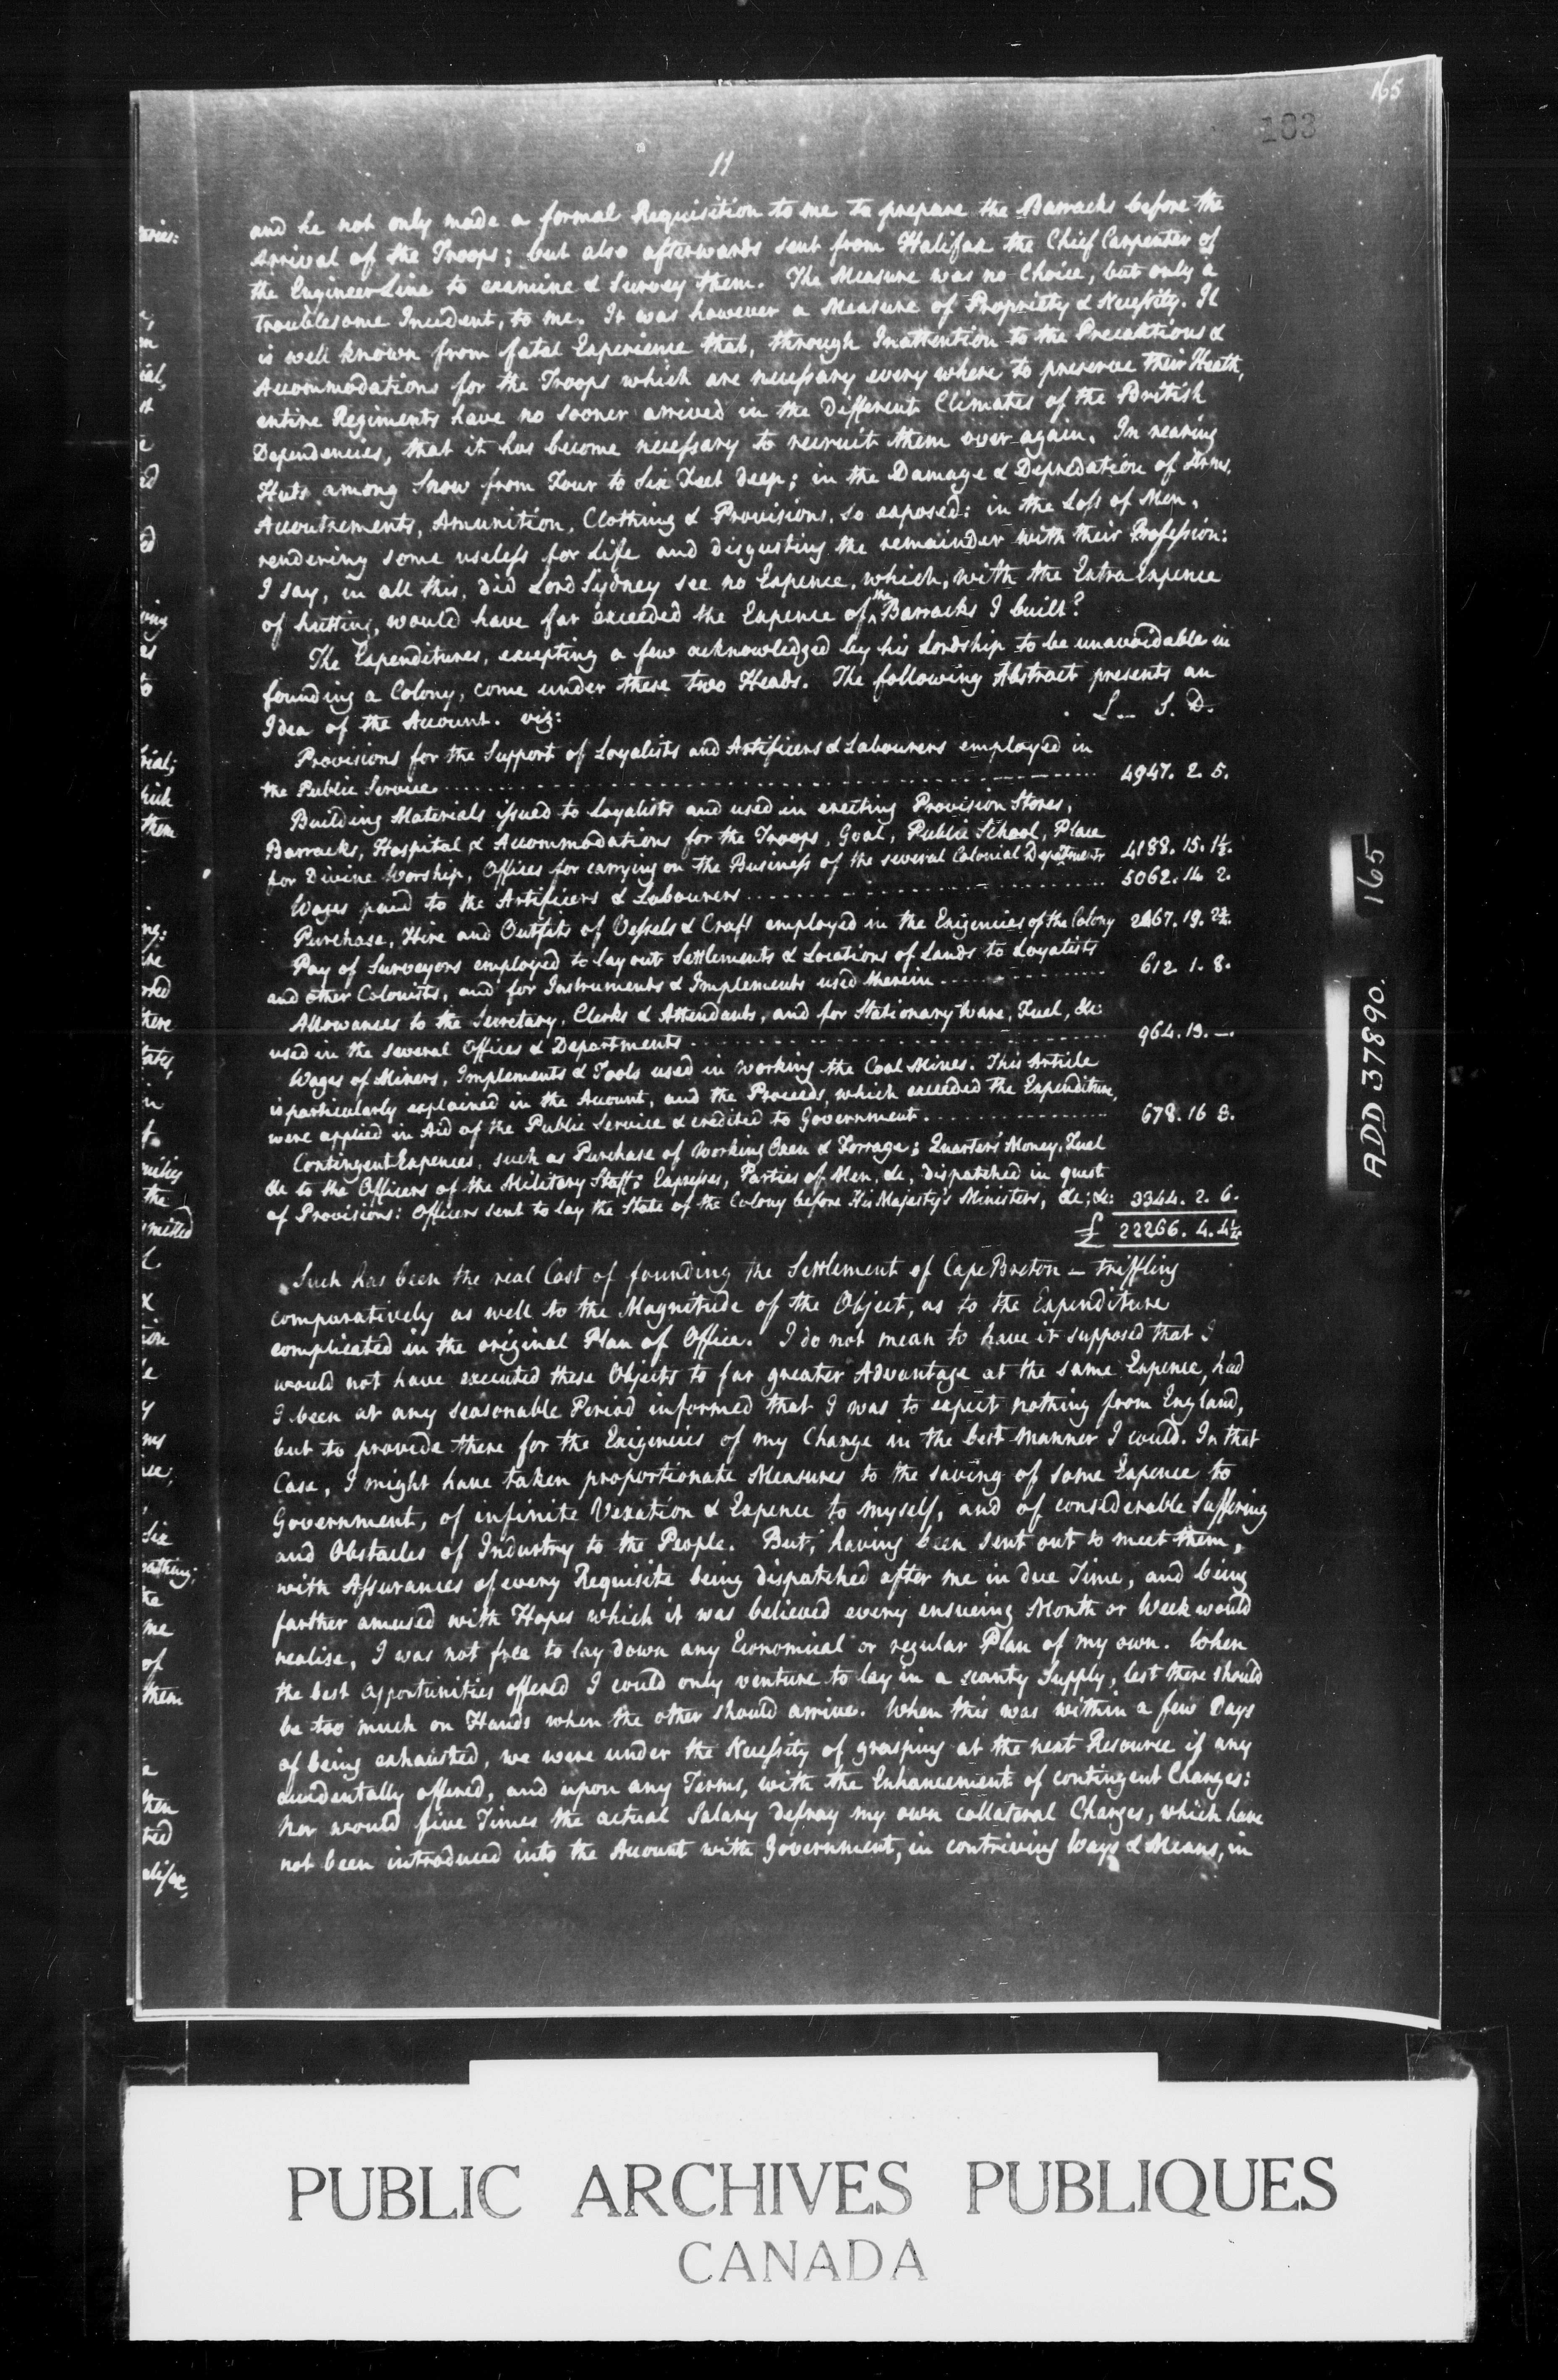 165
163
11
and he not only made a formal Requisition to me to prepare the Barracks before the
Arrival of the Troops; but also afterwards sent from Halifax the Chief Carpenter of
the Engineer Line to examine & Survey them. The Measure was no Choice, but only a
troublesome Incident, to me. It was however a Measure of Propriety & Necessity. It
is well known from fatal Experience that, through Inattention to the Precautions &
Accommodations for the Troops which are necessary every where to preserve their Heath,
entire Regiments have no sooner arrived in the different Climates of the British
Dependencies, that it has become necessary to recruit them over again. In rearing
Huts among Snow from Four to Six Feet deep; in the Damage & Depredation of Arms,
Accoutrements, Amunition, Clothing & Provisions, so exposed: in the Loss of Men,
rendering some useless for Life and disgusting the remainder with their Profession:
I say, in all this, did Lord Sydney see no Expence, which, with the Extra Expence
of hutting, would have far exceeded the Expence of the Barracks I built?
The Expenditures, excepting a few acknowledged by his Lordship to be unavoidable in
founding a Colony, come under these two Heads. The following Abstract presents an
Idea of the Account. viz: L. S. D.
Provisions for the Support of Loyalists and Artificers & Labourers employed in
the Public Service 4947. 2. 5.
Building Materials issued to Loyalists and used in erecting Provision Stores,
Barracks, Hospital & Accommodations for the Troops, Goal, Public School, Place
for Divine Worship, Offices for carrying on the Business of the several Colonial Departments 4188. 15. 1½.
Wages paid to the Artificers & Labourers 5062. 14. 2.
Purchase, Hire and Outfits of Vessels & Craft employed in the Exigencies of the Colony 2467. 19. 2¾.
Pay of Surveyors employed to lay out Settlements & Locations of Lands to Loyalists
and other Colonists, and for Instruments & Implements used therein 612. 1. 8.
Allowances to the Secretary, Clerks & Attendants, and for Stationary Ware, Fuel, &c
used in the several Offices & Departments 964. 13. —.
Wages of Miners, Implements & Tools used in working the Coal Mines. This Article
is particularly explained in the Account, and the Proceeds, which exceeded the Expenditure,
were applied in Aid of the Public Service & credited to Government. 678. 16 3.
Contingent Expences, such as Purchase of Working Oxen & Forrage; Quarters' Money, Fuel
&c to the Officers of the Military Staff: Expresses, Parties of Men, &c, dispatched in quest
of Provisions: Officers sent to lay the State of the Colony before His Majesty's Ministers, &c; &c: 3344. 2. 6.
£ 22266. 4. 4¼
Such has been the real Cost of founding the Settlement of Cape Breton – triffling
comparatively as well to the Magnitude of the Object, as to the Expenditure
complicated in the original Plan of Office. I do not mean to have it supposed that I
would not have executed these Objects to far greater Advantage at the same Expence, had
I been at any seasonable Period informed that I was to expect nothing from England,
but to provide there for the Exigencies of my Charge in the best manner I could. In that
Case, I might have taken proportionate Measures to the saving of some Expence to
Government, of infinite Vexation & Expence to myself, and of considerable Suffering
and Obstacles of Industry to the People. But, having been sent out to meet them,
with Assurances of every Requisite being dispatched after me in due Time, and being
farther amused with Hopes which it was believed every ensueing Month or Week would
realise, I was not free to lay down any Economical or regular Plan of my own. When
the best Opportunities offered I could only venture to lay in a scanty Supply, lest there should
be too much on Hands when the other should arrive. When this was within a few Days
of being exhausted, we were under the Necessity of grasping at the next Resource if any
accidentally offered, and upon any Terms, with the Enhancement of contingent Charges:
nor would five Times the actual Salary defray my own collateral Charges, which have
not been introduced into the Account with Government, in contriving Ways & Means, in
ADD 37890. 165
PUBLIC ARCHIVES PUBLIQUES
CANADA